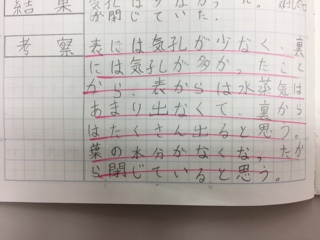 結果
が閉じていた。
考察
表には気孔が少なく、裏
には気孔が多かったこと
から、表からは水蒸気は
あまり出なくて、裏から
はたくさん出ると思う。
葉の水分がなくなったか
ら閉じていると思う。